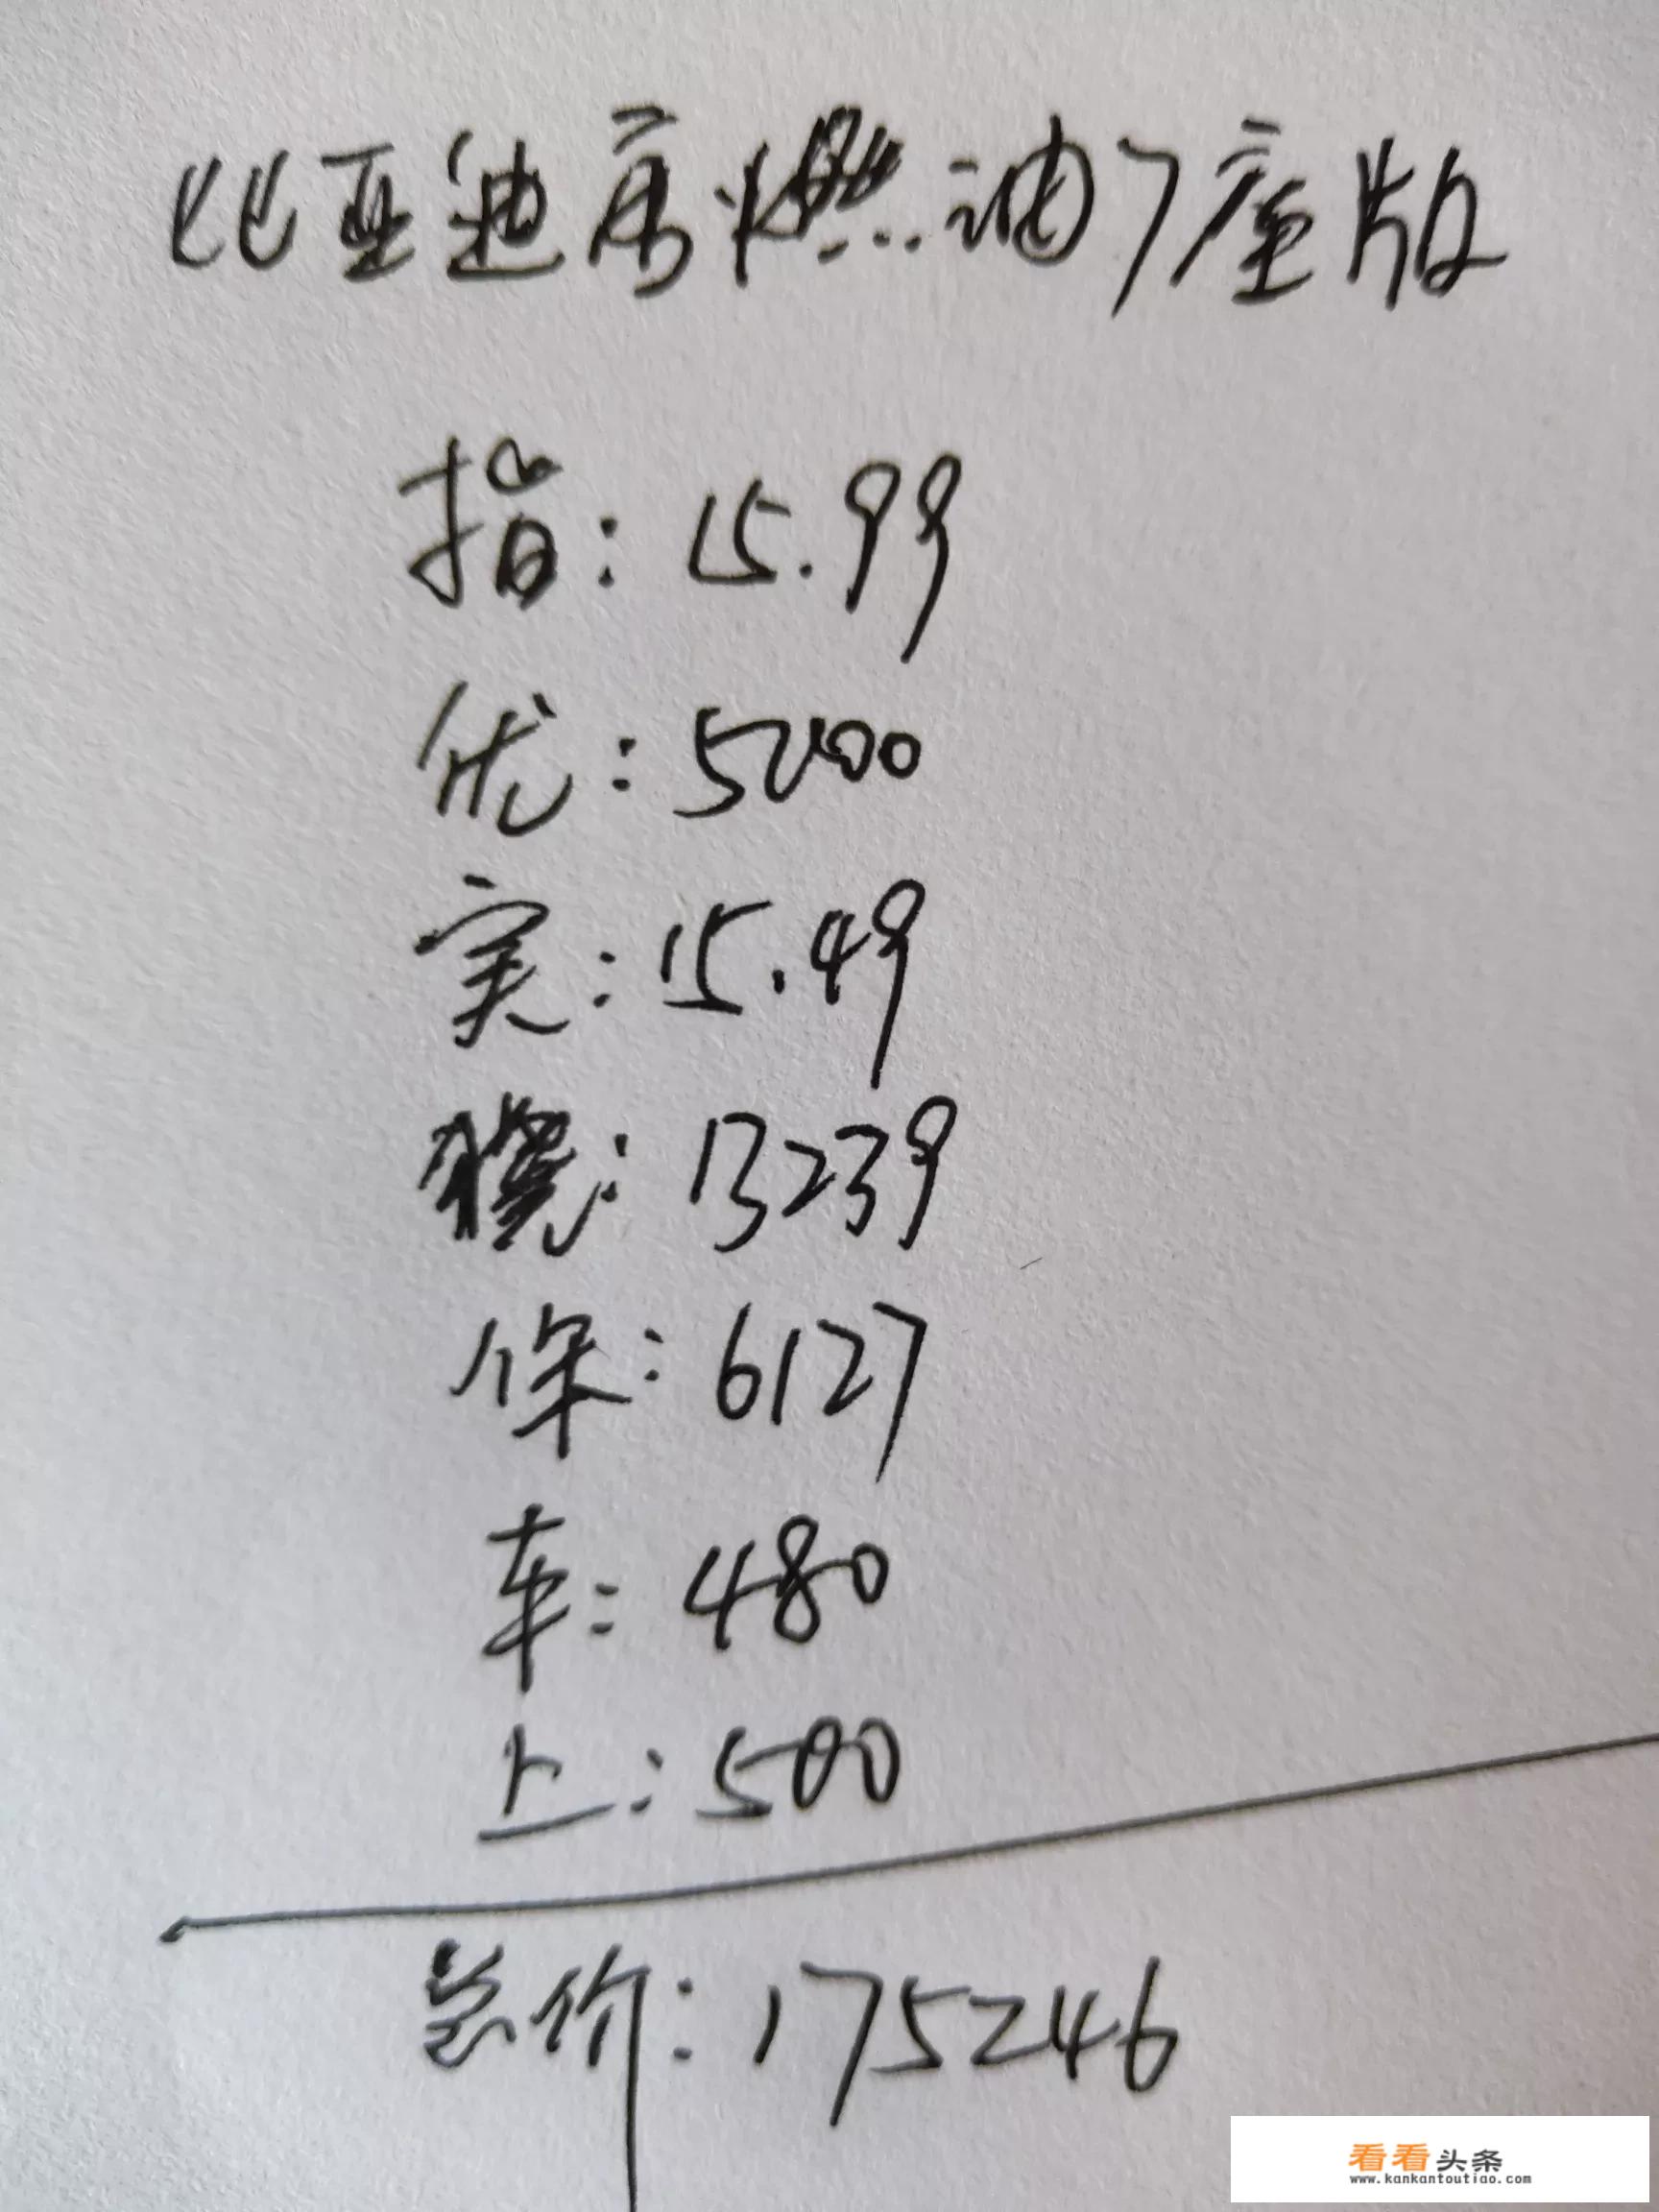 比亚迪宋燃油7座版
指:15.99
优:5000
实:15.49
:13239
保:6127
车:480
上:500
总价:175246
看看头条
www.kankantoutiao.com